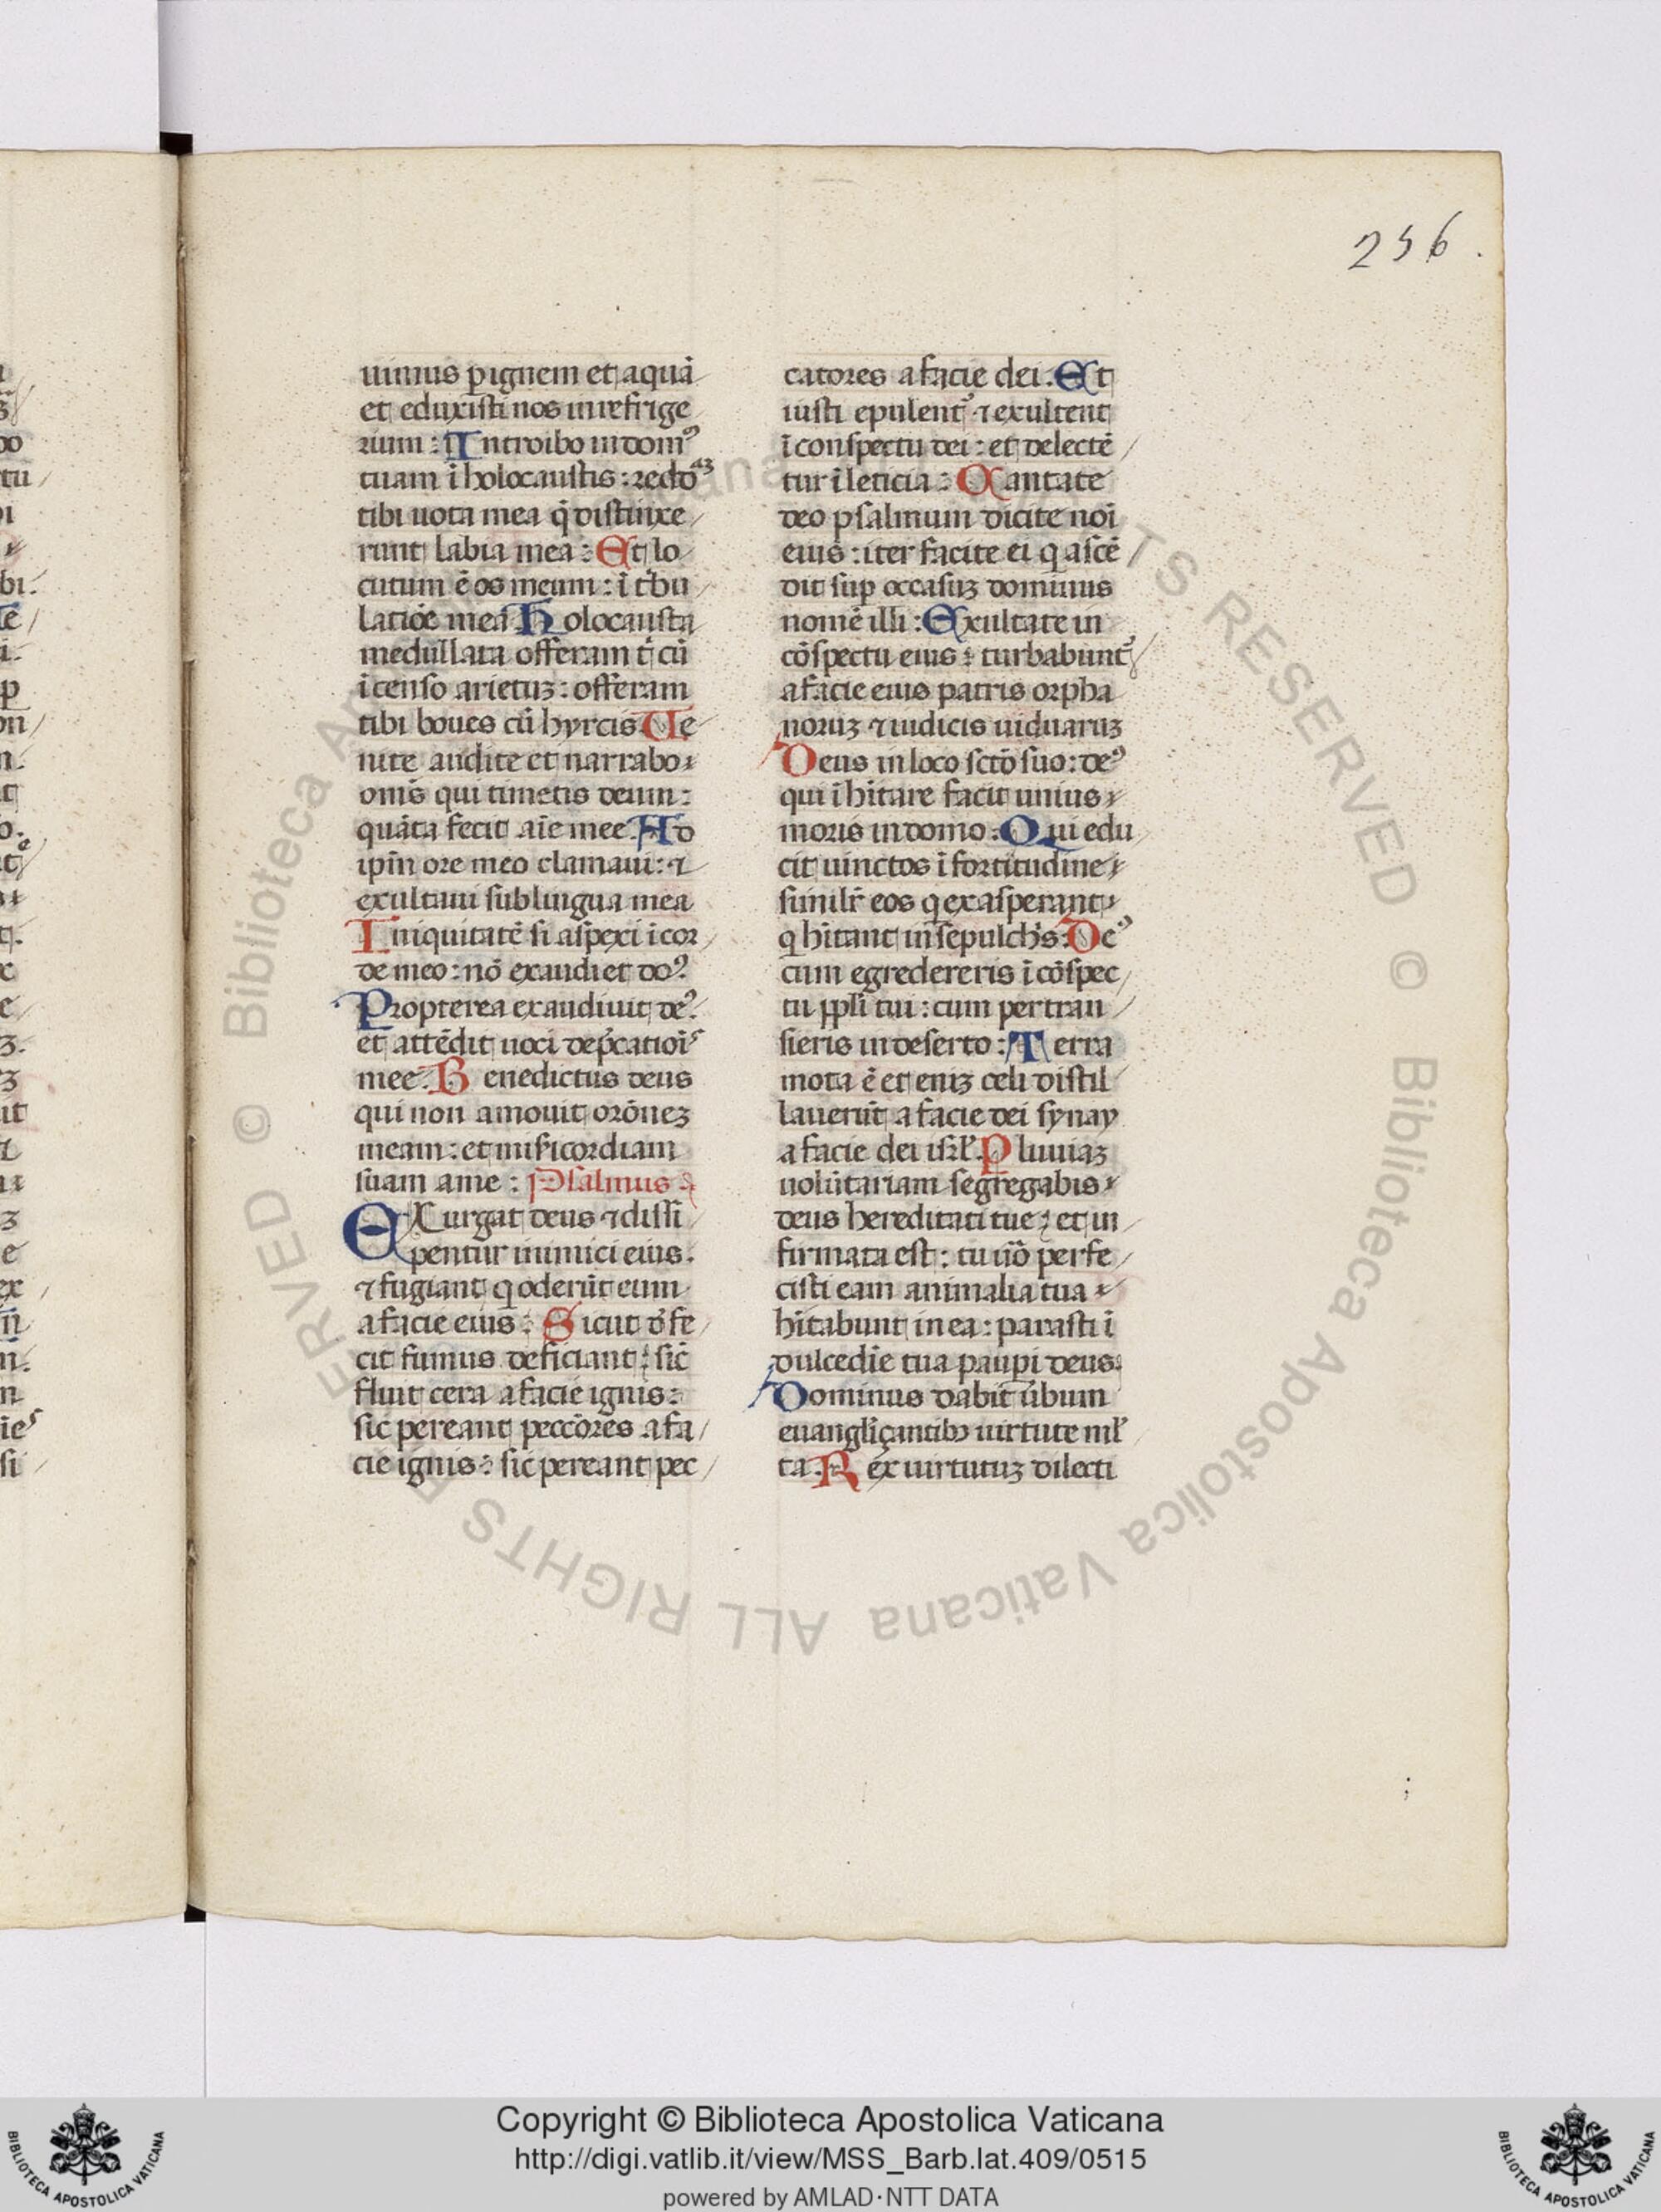 256.
uimus p ignem et aquā
et eduxisti nos in refrige
rium : Introibo in domꝰ
tuam ī holocaustis : reddō
tibi uota mea q̄ distinxe
runt labia mea : Et lo
cutum ē os meum : ī t'bu
latiōe mea Holocausta
medullata offeram t' cū
īcenso arietuꝫ : offeram
tibi boues cū hyrcis Ue
nite audite et narrabo
oms̄ qui timetis deum :
quāta fecit aīe mee. Ad
ipm̄ ore meo clamaui : ⁊
exultaui sub lingua mea
Iniquitatē si aspexi ī cor
de meo : nō exaudiet doꝰ.
Propterea exaudiuit deꝰ.
et attēdit uoci dep̄catiois
mee. Benedictus deus
qui non amouit orōneꝫ
meam : et misicordiam
suam a me : Psalmus
EXurgat deus ⁊ dissi
pentur inimici eius.
⁊ fugiant q oderūt eum
a facie eius : Sicut d'fe
cit fumus deficiant : sic̄
fluit cera a facie ignis :
sic pereant peccōres a fa
cie ignis : sic pereant pec
catores a facie dei. Et
iusti epulentꝰ ⁊ exultent
ī conspectu dei : et delectē
tur ī leticia : Cantate
deo psalmum dicite noī
eius : iter facite ei q ascē
dit sup occasuꝫ dominus
nomē illi : Exultate in
cōspectu eius : turbabuntꝰ
a facie eius patris orpha
noruꝫ ⁊ iudicis uiduaruꝫ
Deus in loco sctō suo : deꝰ
qui īhitare facit unius
moris in domo : Qui edu
cit uinctos ī fortitudine
similr̄ eos q exasperant
q hitant in sepulch's : Deꝰ
cum egredereris ī cōspec
tu ppli tui : cum pertran
sieris in deserto : Terra
mota ē et eniꝫ celi distil
lauerūt a facie dei synay
a facie dei isrl̄. Pluuiaꝫ
uolūtariam segregabis
deus hereditati tue ; et in
firmata est : tu uō perfe
cisti eam animalia tua
hitabunt in ea : parasti ī
dulcedīe tua paupi deus.
Dominus dabit ūbum
euangliçantibꝫ uirtute ml̄
ta. Rex uirtutuꝫ dilecti
© Biblioteca Apostolica Vaticana ALL RIGHTS RESERVED
Copyright © Biblioteca Apostolica Vaticana
http://digi.vatlib.it/view/MSS_Barb.lat.409/0515
powered by AMLAD·NTT DATA
BIBLIOTECA APOSTOLICA VATICANA
BIBLIOTECA APOSTOLICA VATICANA